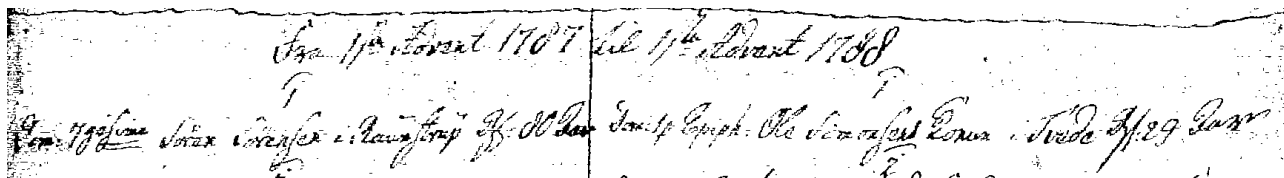 Fra 1ste Advent 1787 til 1ste Advent 1788
1 1
Dom: Sören Sörensen i Raunstrup Æt. 80 Aar Dom: 1 p Epiph. Ole Simonsens Kone i Tvede Æt. 29 Aar